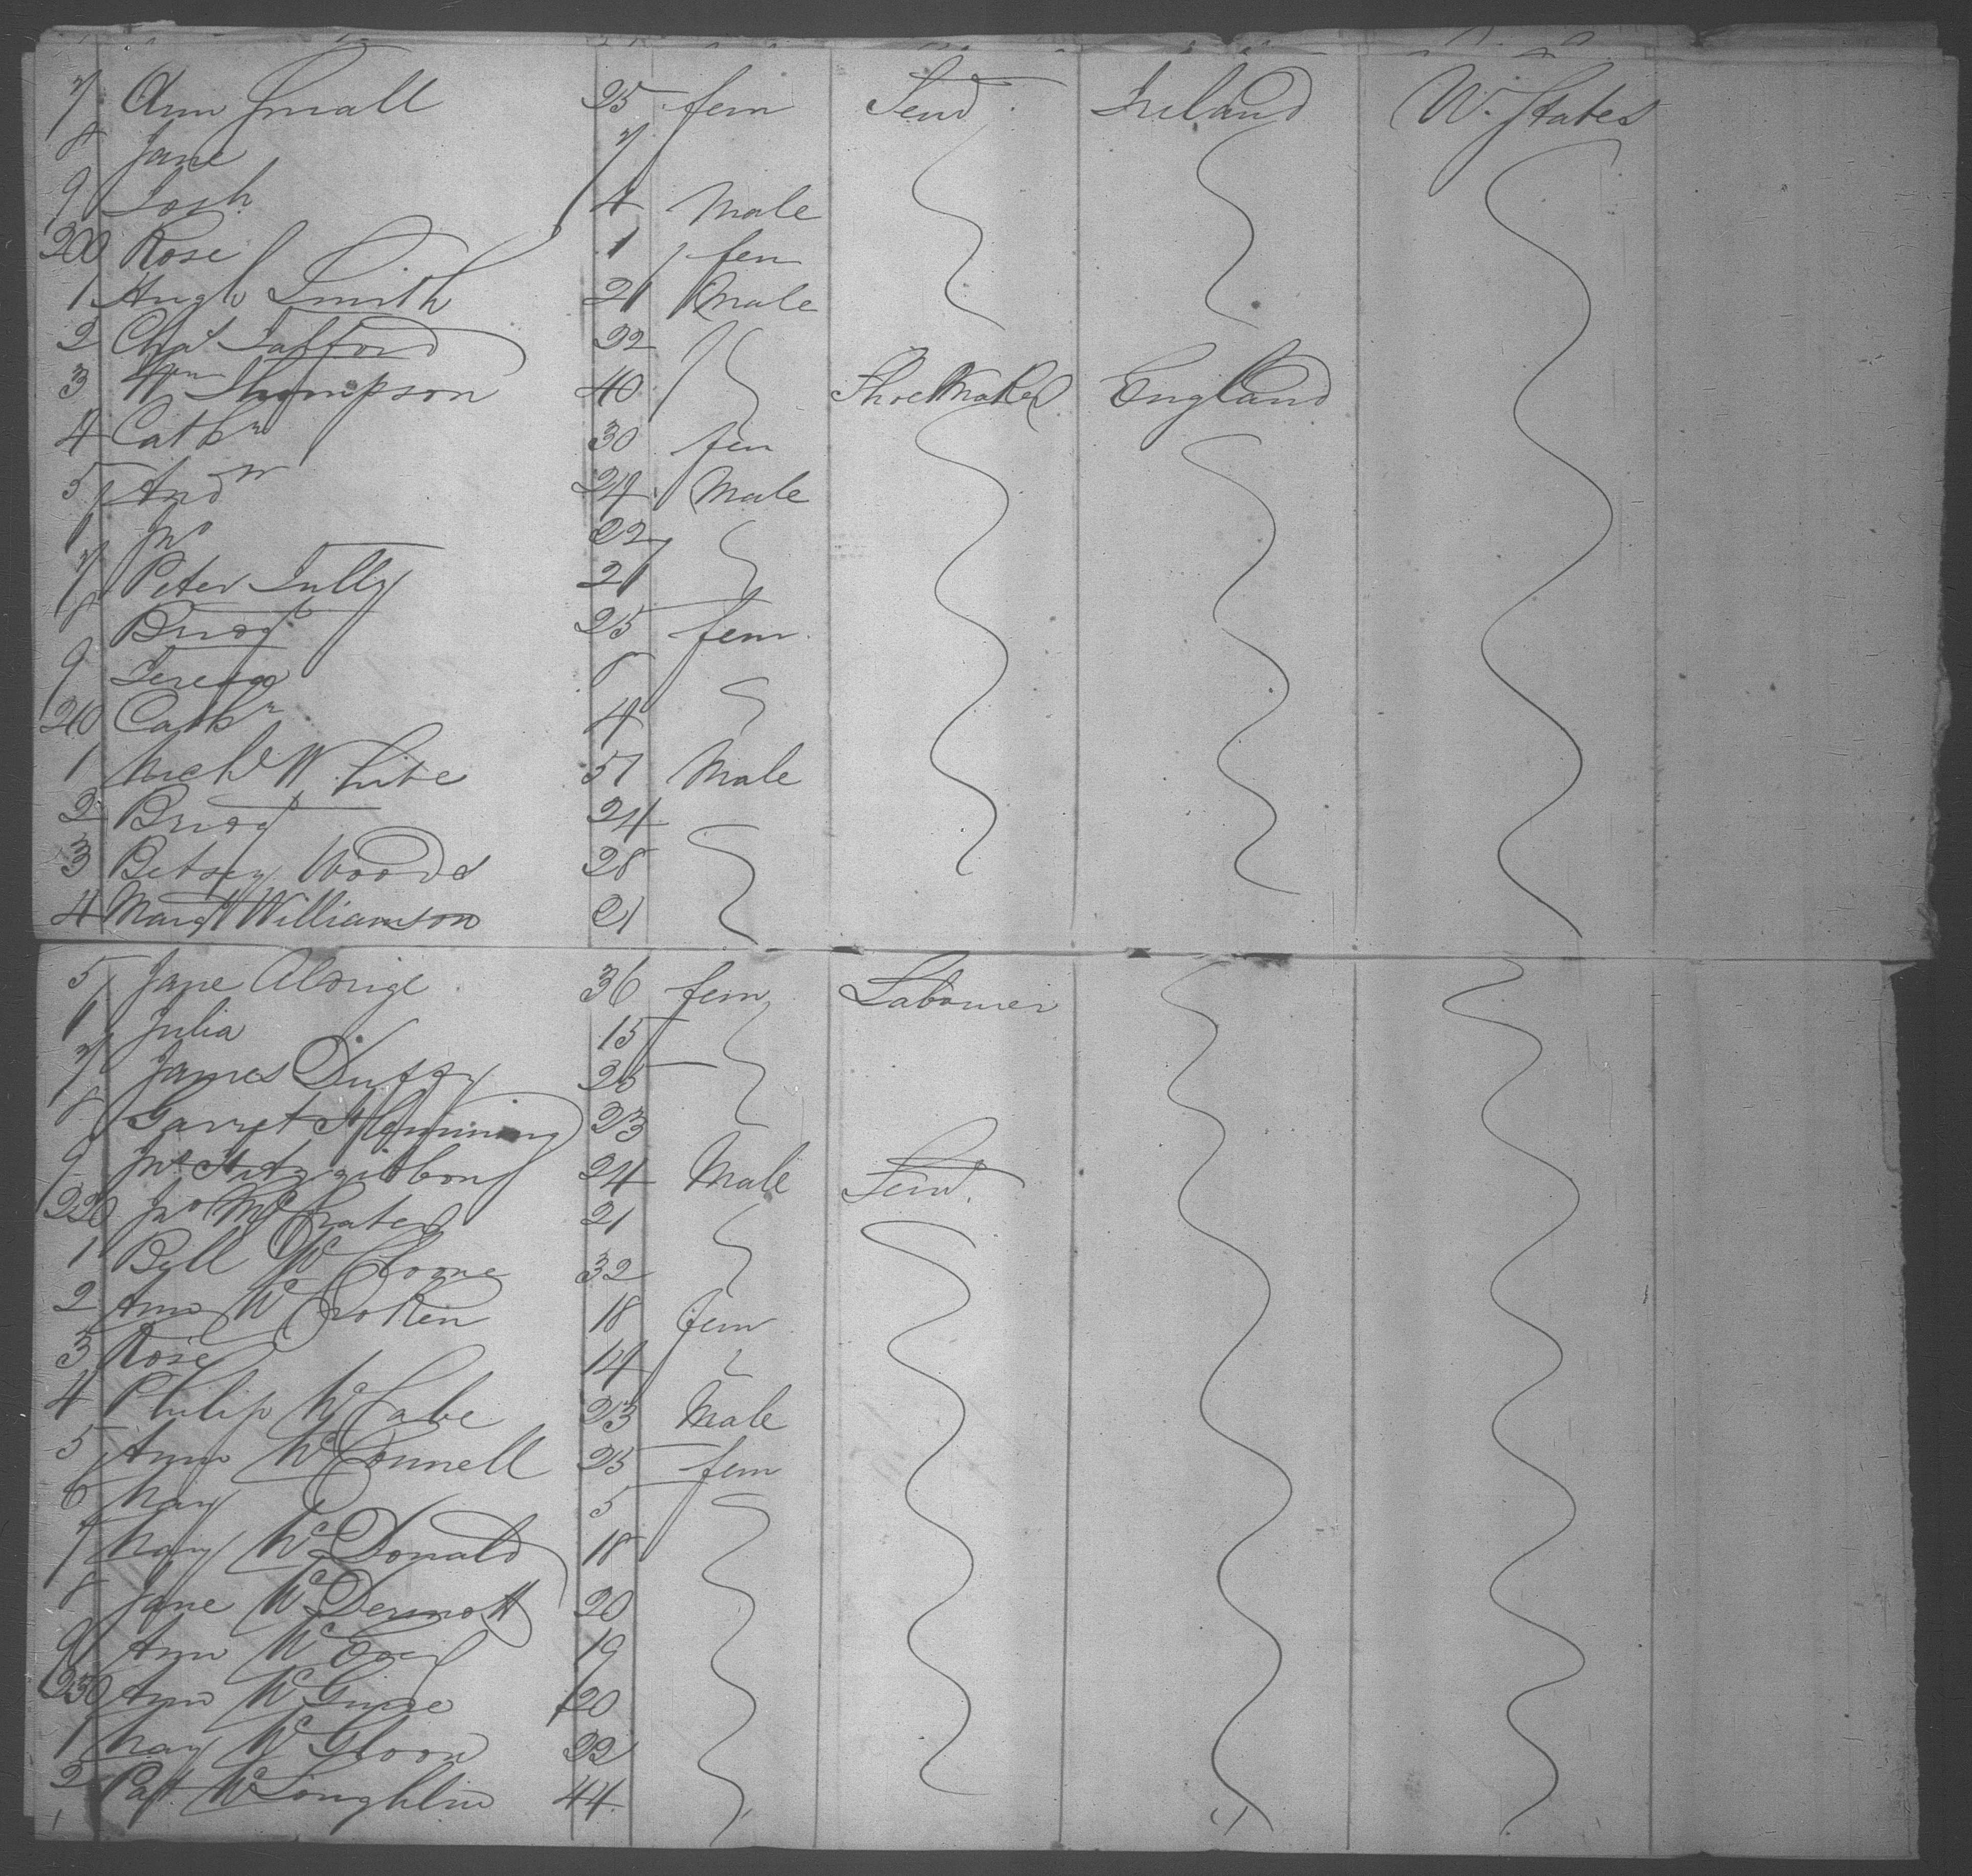 7 Ann Small 25 fem Serv. Ireland U. States
8 Jane 7
9 Josh 4 Male
200 Rose 1 fem
1 Hugh Smith 21 Male
2 Chas 22
3 Wm Thompson 40 Shoe Maker England
4 Cathn 30 fem
5 Andw 24 Male
6 Jno 22
7 Peter Tully 21
8 Bridgt 25 fem
9 Teresa 6
210 Cathn 4
1 Michl White 57 Male
2 Bridgt 24
3 Betsey Woods 28
4 Margt Williamson 21
5 Jane Aldrige 36 fem Labourer
6 Julia 15
7 James Duffy 25
8 Garret 23
9 Jno Fitzgibbons 24 Male Serv.
220 Jno 21
1 32
2 Ann 18 fem
3 Rose 14
4 Philip McCabe 23 Male
5 Ann McConnell 25 fem
6 Mary 5
7 Mary McDonald 18
8 Jane McDermott 20
9 Ann 19
230 Ann 20
1 Mary 22
2 Pat McLoughlin 44